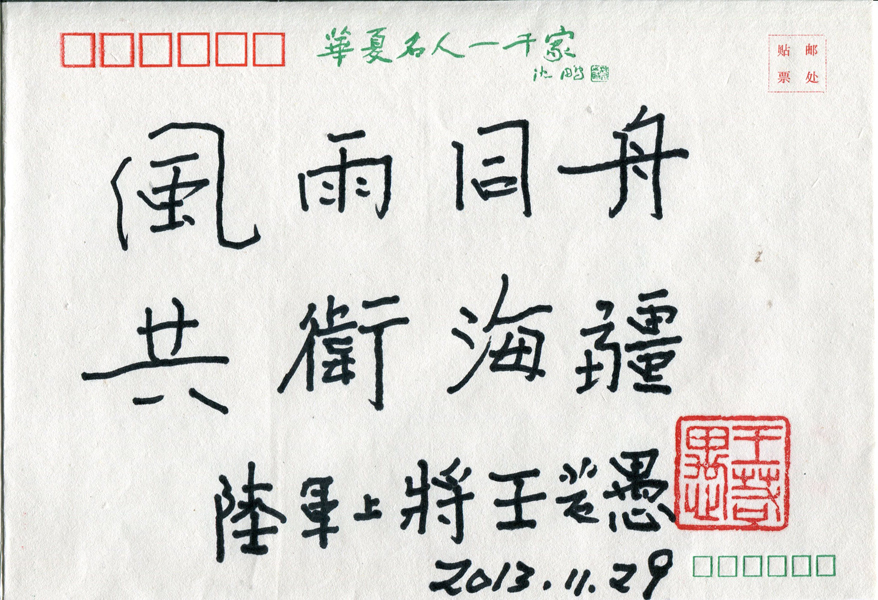 華夏名人一千家
沈鹏
贴 邮
票 处
風雨同舟
共衛海疆
陸軍上將王若愚
2013.11.29